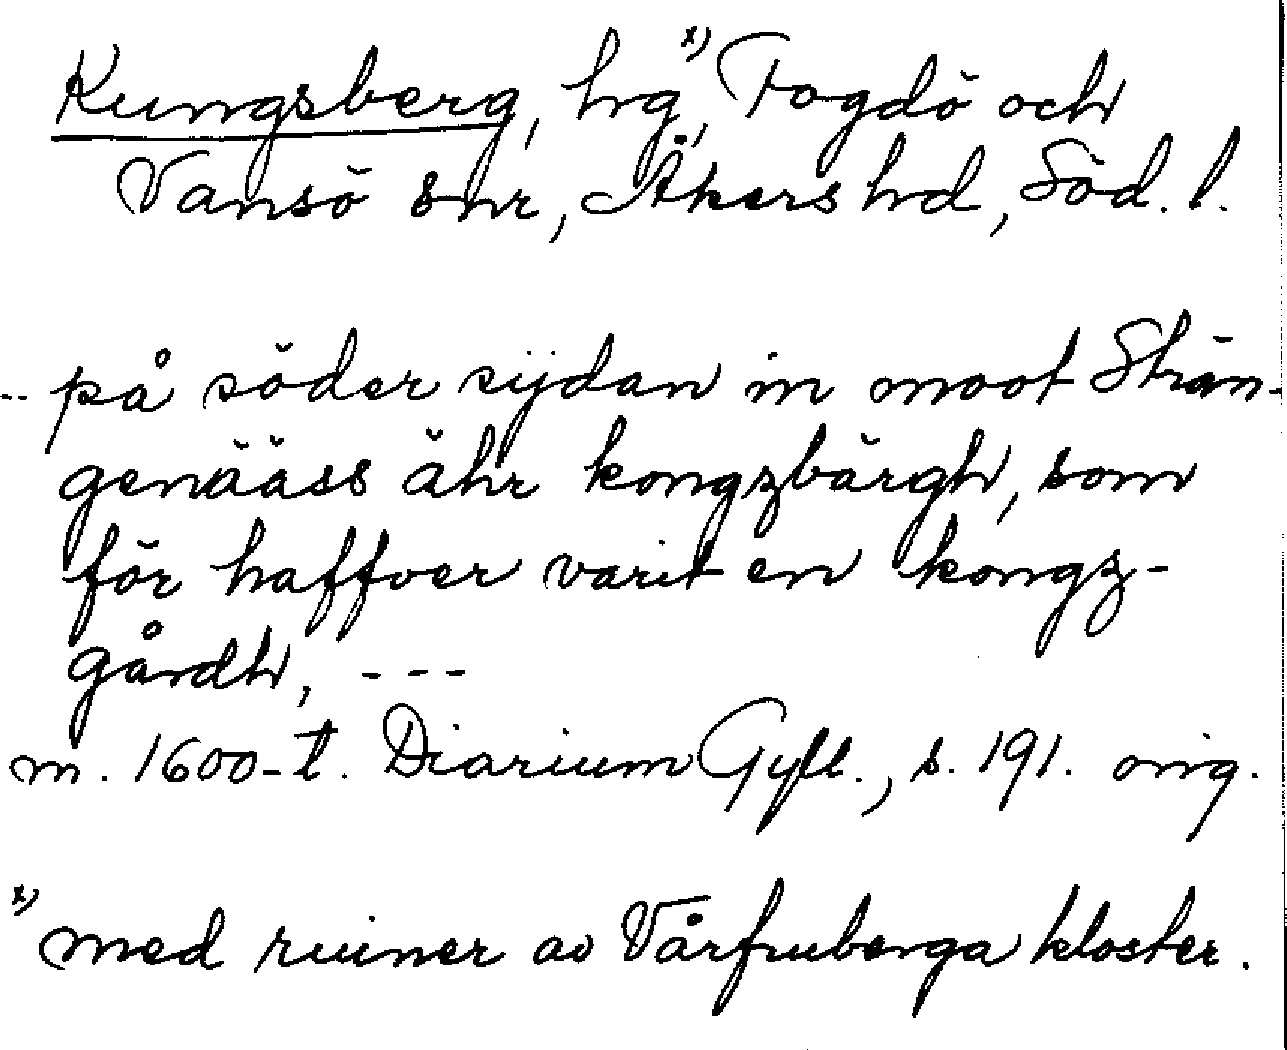 Kungsberg, hg, x) Fogdö och
Vansö snr, Åkers hd, Söd. l.
.. på söder sijdan in moot Strän-
genääss ähr kongzbärgh, som
för haffver varit en kongz-
gårdh, ---
m. 1600-t. Diarium Gyll., s. 191. orig.
x) med ruiner av Vårfruberga kloster.